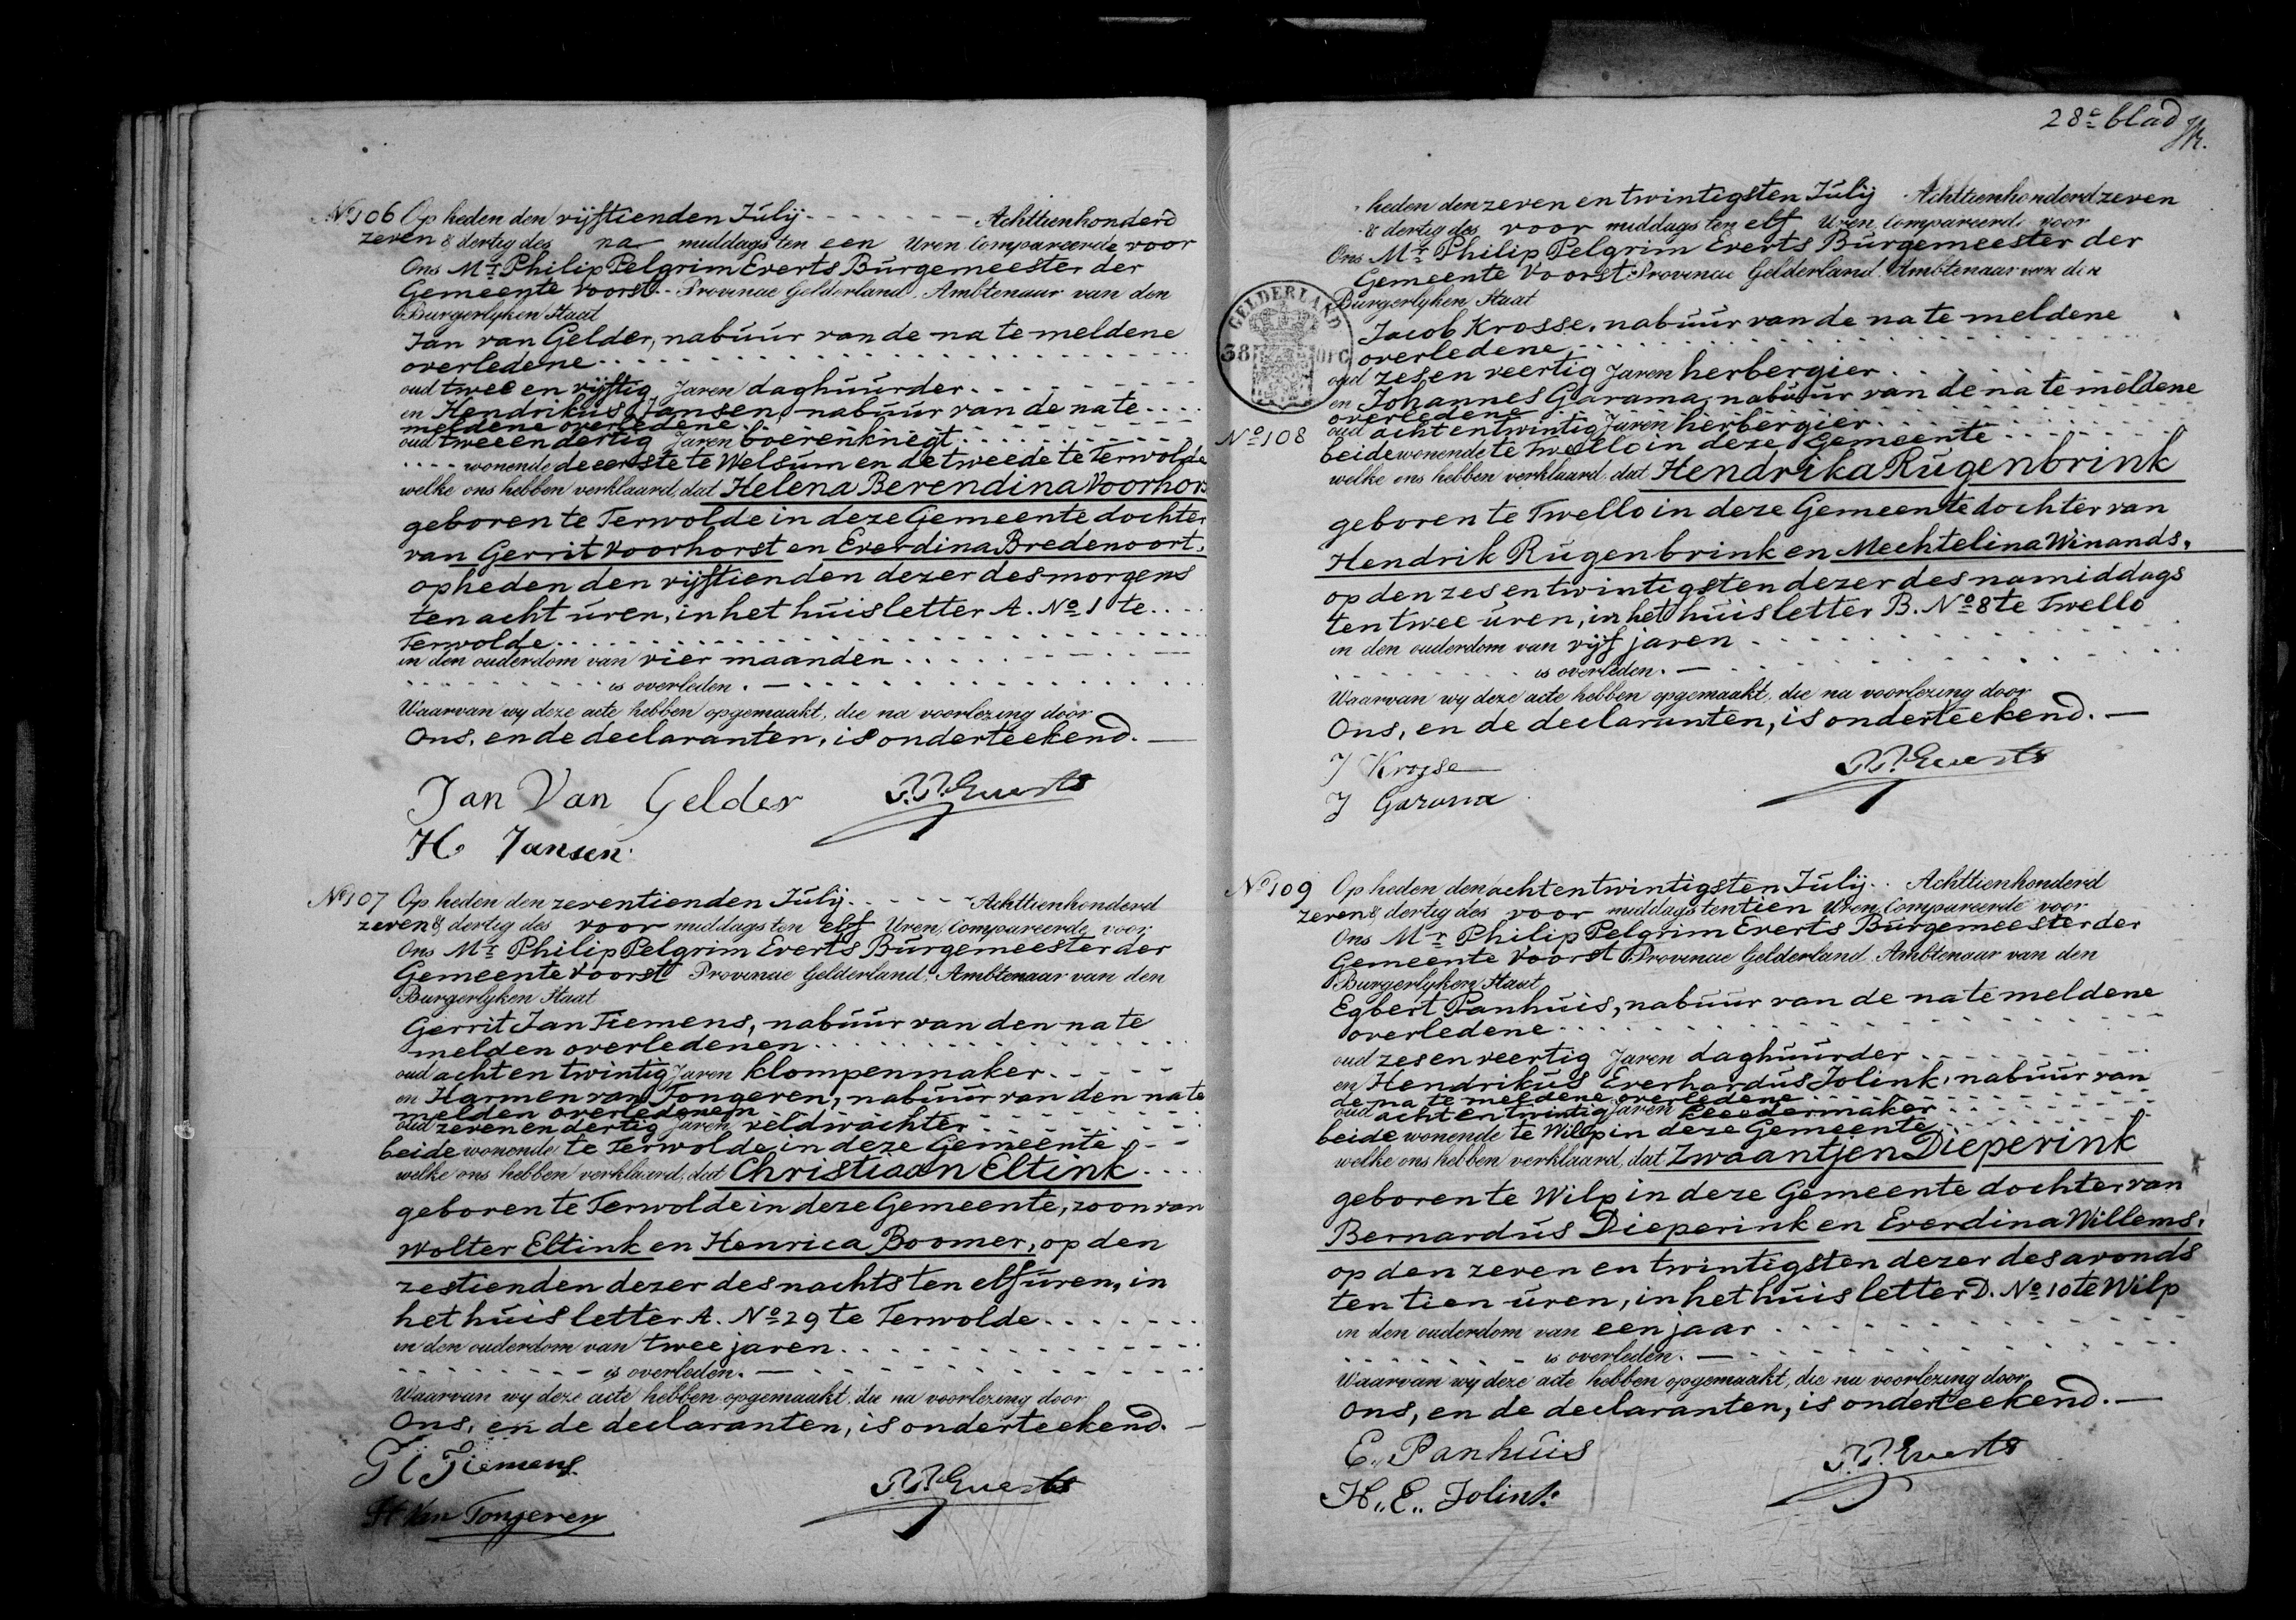 No 106 Op heden den vijftienden Julij - - - - - - - Achttienhonderd
zeven & dertig des na middags ten een Uren Compareerde voor
Ons Mr Philip Pelgrim Everts Burgemeester der
Gemeente Voorst - Provincie Gelderland, Ambtenaar van den
Burgerlyken Staat
Jan van Gelder, nabuur van de na te meldene
overledene
oud twee en vijftig Jaren daghuurder
en Hendrikus Jansen, nabuur van de na te
meldene overledene
oud twee en dertig Jaren boerenknegt
wonende de eerste te Welsum en de tweede te Terwolde
welke ons hebben verklaard, dat Helena Berendina Voorhors
geboren te Terwolde in deze Gemeente dochter
van Gerrit Voorhorst en Everdina Bredenoort,
op heden den vijftienden dezer des morgens
ten acht uren, in het huis letter A. No 1 te
Terwolde
in den ouderdom van vier maanden
is overleden.
Waarvan wy deze acte hebben opgemaakt, die na voorlezing door
Ons, en de declaranten, is onderteekend.
Jan Van Gelder P.P. Everts
H. Jansen
No 107 Op heden den zeventienden Julij - - - - - Achttienhonderd
zeven & dertig des voor middags ten elf Uren, Compareerde voor
Ons Mr Philip Pelgrim Everts Burgemeester der
Gemeente Voorst Provincie Gelderland, Ambtenaar van den
Burgerlyken Staat
Gerrit Jan Tiemens, nabuur van den na te
melden overledenen
oud acht en twintig Jaren klompenmaker
en Harmen van Tongeren, nabuur van den na te
melden overledenen
oud zeven en dertig Jaren veldwachter
beide wonende te Terwolde in deze Gemeente
welke ons hebben verklaard, dat Christiaan Eltink
geboren te Terwolde in deze Gemeente, zoon van
Wolter Eltink en Henrica Boomer, op den
zestienden dezer des nachts ten elf uren, in
het huis letter A. No 29 te Terwolde
in den ouderdom van twee jaren
is overleden.
Waarvan wy deze acte hebben opgemaakt, die na voorlezing door
Ons, en de declaranten, is onderteekend.
G Tiemens
P.P. Everts
H Van Tongeren
28e blad
heden den zeven en twintigsten Julij Achttienhonderd zeven
& dertig des voor middags ten elf Uren, Compareerde voor
Ons Mr Philip Pelgrim Everts Burgemeester der
Gemeente Voorst Provincie Gelderland, Ambtenaar van den
Burgerlyken Staat
GELDERLAND
38
Jacob Krosse, nabuur van de na te meldene
overledene
oud zes en veertig Jaren herbergier
en Johannes Garama, nabuur van de na te meldene
overledene
No 108 oud acht en twintig Jaren herbergier
beide wonende te Twello in deze Gemeente
welke ons hebben verklaard, dat Hendrika Rugenbrink
geboren te Twello in deze Gemeente dochter van
Hendrik Rugenbrink en Mechtelina Winands,
op den zes en twintigsten dezer des namiddags
ten twee uren, in het huis letter B. No 8 te Twello
in den ouderdom van vijf jaren
is overleden.
Waarvan wy deze acte hebben opgemaakt, die na voorlezing door
Ons, en de declaranten, is onderteekend.
J Krosse P.P. Everts
J Garama
No 109 Op heden den acht en twintigsten Julij Achttienhonderd
zeven & dertig des voor middags ten tien Uren, Compareerde voor
Ons Mr Philip Pelgrim Everts Burgemeester der
Gemeente Voorst Provincie Gelderland, Ambtenaar van den
Burgerlyken Staat
Egbert Panhuis, nabuur van de na te meldene
overledene
oud zes en veertig Jaren daghuurder
en Hendrikus Everhardus Jolink, nabuur van
de na te meldene overledene
oud acht en twintig Jaren kleedermaker
beide wonende te Wilp in deze Gemeente
welke ons hebben verklaard, dat Zwaantjen Dieperink
geboren te Wilp in deze Gemeente dochter van
Bernardus Dieperink en Everdina Willems,
op den zeven en twintigsten dezer des avonds
ten tien uren, in het huis letter D. No 10 te Wilp
in den ouderdom van een jaar
is overleden.
Waarvan wy deze acte hebben opgemaakt, die na voorlezing door
Ons, en de declaranten, is onderteekend.
E. Panhuis P.P. Everts
H.. E.. Jolink